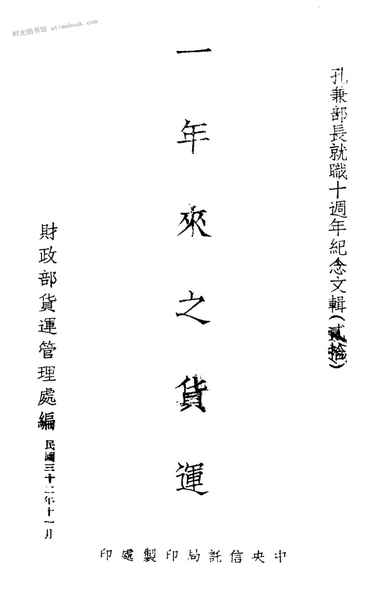 时光图书馆 etimebook.com
孔兼部長就職十週年紀念文輯(貳拾)
一年來之貨運
財政部貨運管理處編 民國三十二年十一月
中央信託局印製處印